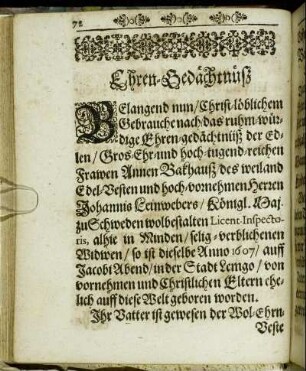 72
Ehren-Gedächtnüß
BElangend nun/Christ-löblichem
Gebrauche nach/das ruhm-wür-
dige Ehren-gedächtnüß der Ed-
len/Gros-Ehr-und hoch-tugend-reichen
Frawen Annen Bakhauß des weiland
Edel-Vesten und hoch-vornehmen Herren
Johannis Leinwebers/Königl. Maj.
zu Schweden wolbestalten Licent-Inspecto-
ris, alhie in Minden/selig-verblichenen
Widwen/so ist dieselbe Anno 1607/auff
Jacobi Abend/in der Stadt Lemgo/von
vornehmen und Christlichen Eltern ehe-
lich auff diese Welt geboren worden.
Ihr Vatter ist gewesen der Wol-Ehrn-
Veste